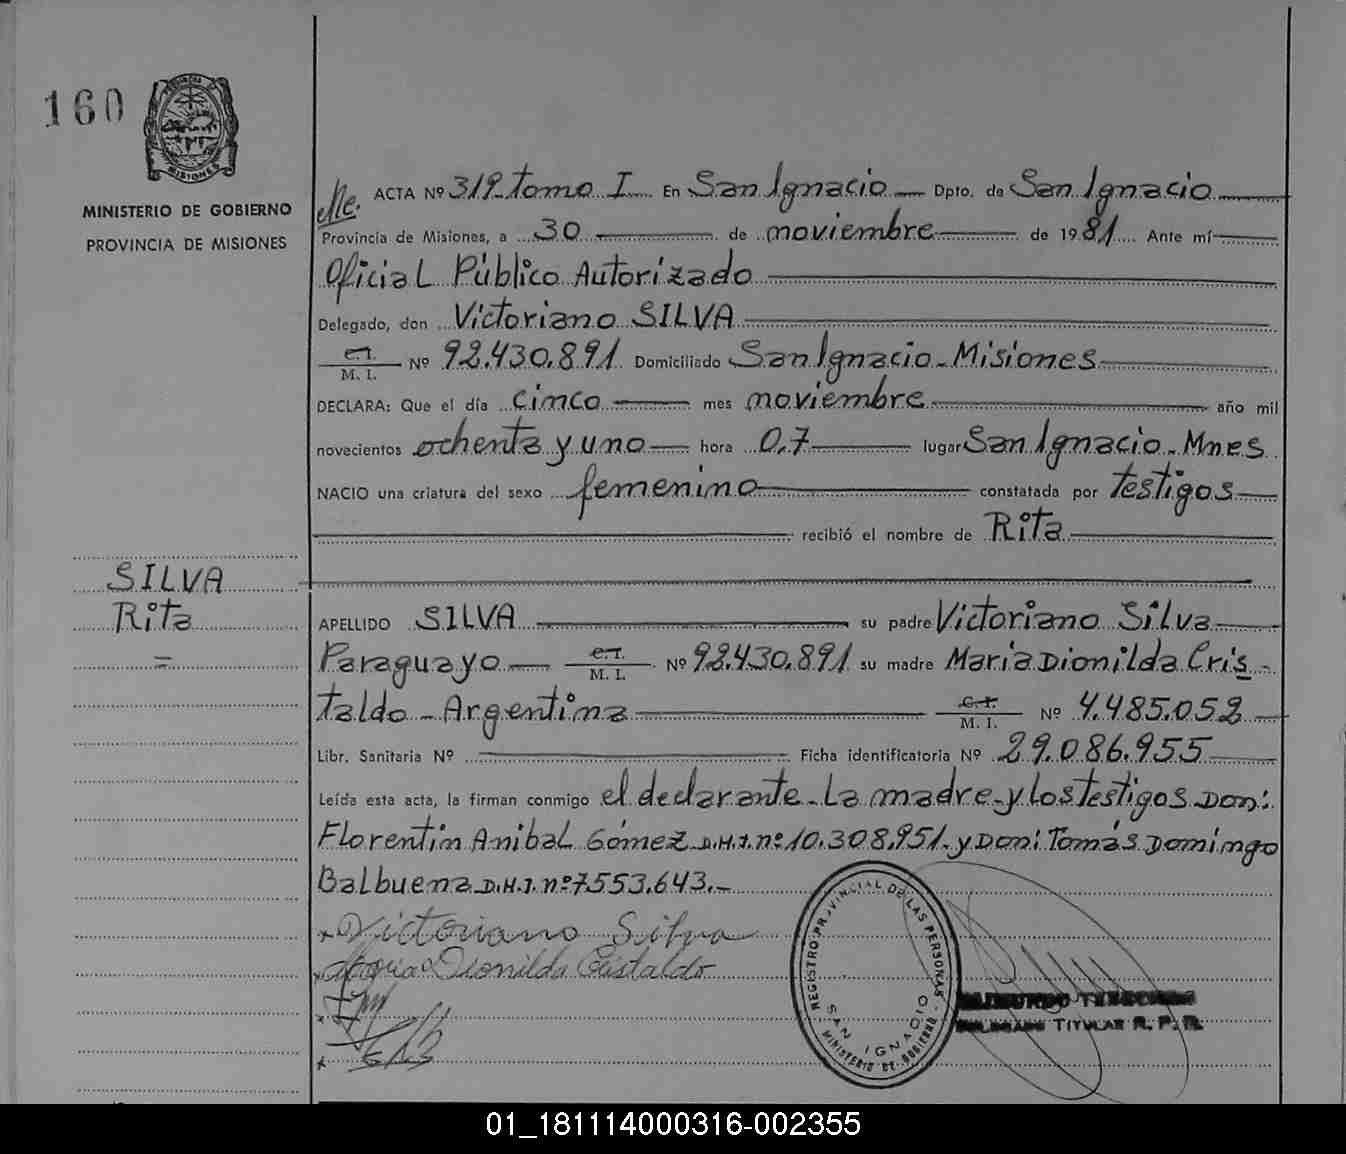 160
MISIONES
MINISTERIO DE GOBIERNO
PROVINCIA DE MISIONES
SILVA
Rita
=
ACTA Nº 319 tomo I En San Ignacio Dpto. de San Ignacio
Provincia de Misiones, a 30 de noviembre de 1981 Ante mí
Oficial Público Autorizado
Delegado, don Victoriano SILVA
C.I. / M. I. Nº 92.430.891 Domiciliado San Ignacio - Misiones
DECLARA: Que el día cinco mes noviembre año mil
novecientos ochenta y uno hora 0,7 lugar San Ignacio - Mnes
NACIO una criatura del sexo femenino constatada por testigos
recibió el nombre de Rita
APELLIDO SILVA su padre Victoriano Silva
Paraguayo C.I. / M. I. Nº 92.430.891 su madre María Dionilda Cris-
taldo - Argentina C.I. / M. I. Nº 4.485.052
Libr. Sanitaria Nº Ficha identificatoria Nº 29.086.955
Leída esta acta, la firman conmigo el declarante - La madre - y los testigos Don:
Florentín Anibal Gómez D.N.I. nº 10.308.951. y Don: Tomás Domingo
Balbuena D.N.I. nº 7553.643.-
Victoriano Silva
Maria Dionilda Cristaldo
REGISTRO PROVINCIAL DE LAS PERSONAS - MINISTERIO DE GOBIERNO -
SAN IGNACIO
DELEGADO TITULAR R. P. P.
01_181114000316-002355